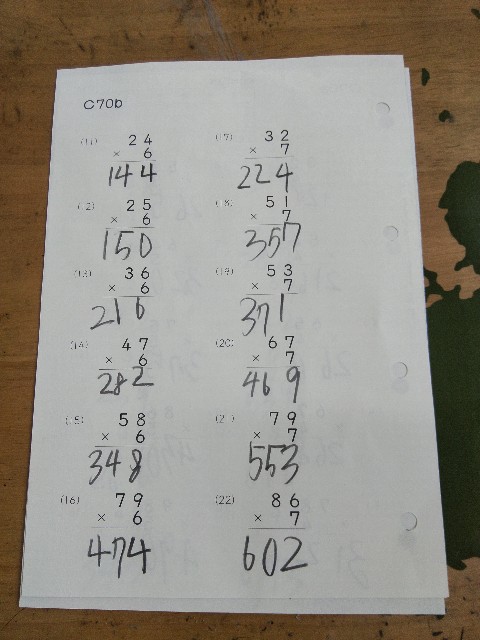 C70b
(11) 24
× 6
144
(12) 25
× 6
150
(13) 36
× 6
216
(14) 47
× 6
282
(15) 58
× 6
348
(16) 79
× 6
474
(17) 32
× 7
224
(18) 51
× 7
357
(19) 53
× 7
371
(20) 67
× 7
469
(21) 79
× 7
553
(22) 86
× 7
602